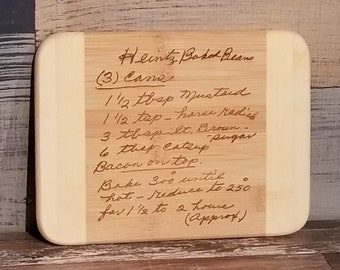 Heintz Baked Beans
(3) Cans
1 1/2 tbsp Mustard
1 1/2 tsp - horse radish
3 tbsp lt. Brown
sugar
6 tbsp catsup
Bacon on top.
Bake 300 until
hot - reduce to 250
for 1 1/2 to 2 hours
(Approx)